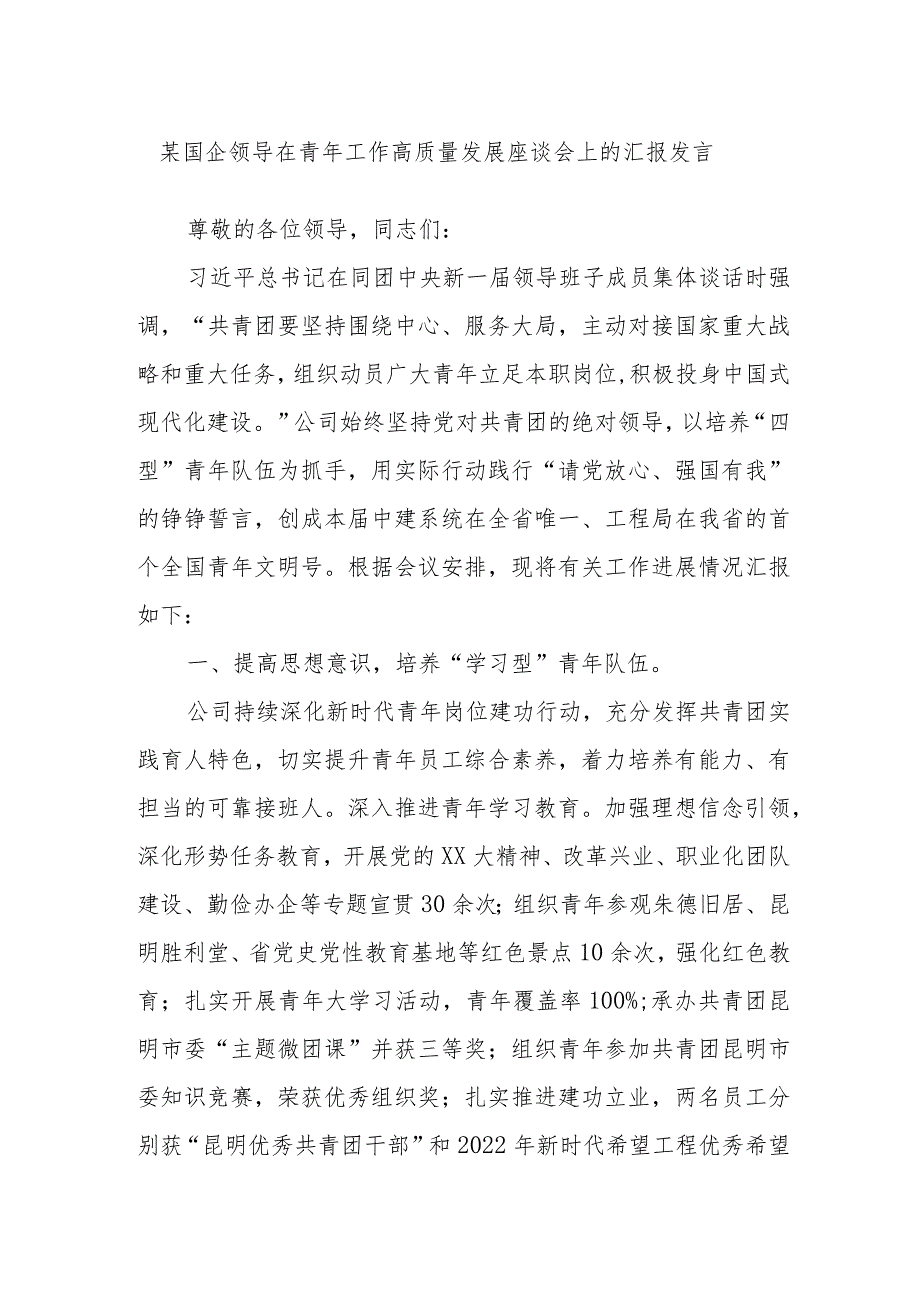 某国企领导在青年工作高质量发展座谈会上的汇报发言
尊敬的各位领导，同志们：
习近平总书记在同团中央新一届领导班子成员集体谈话时强
调，“共青团要坚持围绕中心、服务大局，主动对接国家重大战
略和重大任务，组织动员广大青年立足本职岗位,积极投身中国式
现代化建设。”公司始终坚持党对共青团的绝对领导，以培养“四
型”青年队伍为抓手，用实际行动践行“请党放心、强国有我”
的铮铮誓言，创成本届中建系统在全省唯一、工程局在我省的首
个全国青年文明号。根据会议安排，现将有关工作进展情况汇报
如下：
一、提高思想意识，培养“学习型”青年队伍。
公司持续深化新时代青年岗位建功行动，充分发挥共青团实
践育人特色，切实提升青年员工综合素养，着力培养有能力、有
担当的可靠接班人。深入推进青年学习教育。加强理想信念引领，
深化形势任务教育，开展党的XX大精神、改革兴业、职业化团队
建设、勤俭办企等专题宣贯30余次；组织青年参观朱德旧居、昆
明胜利堂、省党史党性教育基地等红色景点10余次，强化红色教
育；扎实开展青年大学习活动，青年覆盖率100%;承办共青团昆
明市委“主题微团课”并获三等奖；组织青年参加共青团昆明市
委知识竞赛，荣获优秀组织奖；扎实推进建功立业，两名员工分
别获“昆明优秀共青团干部”和2022年新时代希望工程优秀希望